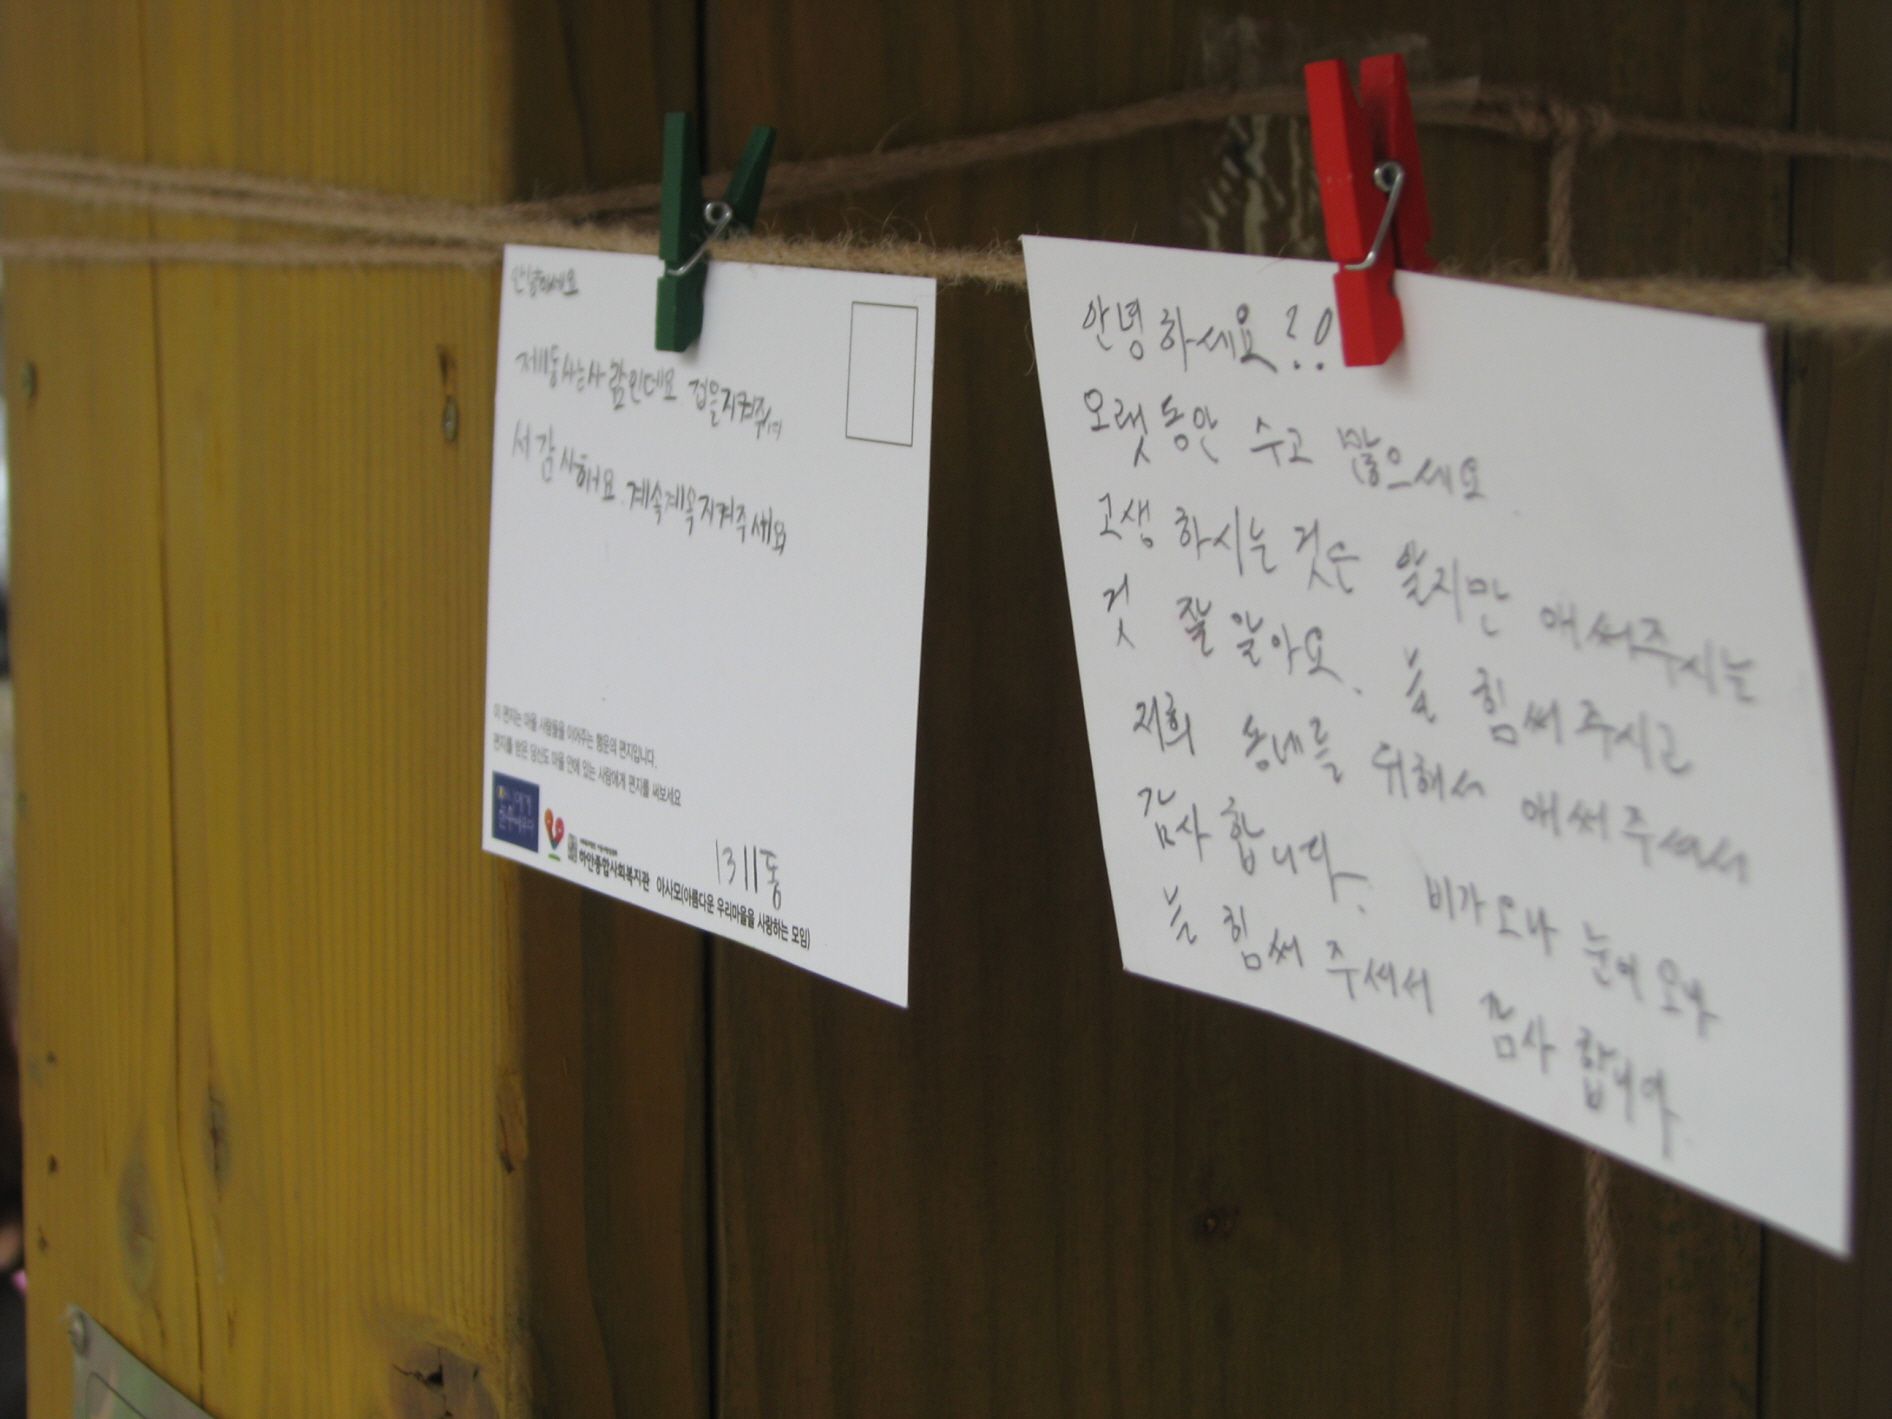 안녕하세요
제1동사는사람인데요 집을지켜줘서
서 감사해요. 계속계속지켜주세요
이 편지는 마을 사람들을 이어주는 행운의 편지입니다.
편지를 받은 당신도 마을 안에 있는 사람에게 편지를 써보세요
1311동
하안종합사회복지관 아사모(아름다운 우리마을을 사랑하는 모임)
안녕하세요?!
오랫동안 수고 많으세요.
고생 하시는 것은 알지만 애써주시는
것 잘 알아요. 늘 힘써주시고
저희 동네를 위해서 애써주셔서
감사합니다. 비가오나 눈이오나
늘 힘써 주셔서 감사합니다.